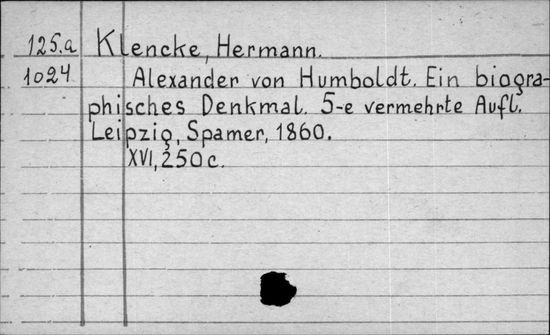 125.a Klencke, Hermann.
1024 Alexander von Humboldt. Ein biogra-
phisches Denkmal. 5-e vermehrte Aufl.
Leipzig, Spamer, 1860.
XVI, 250 c.